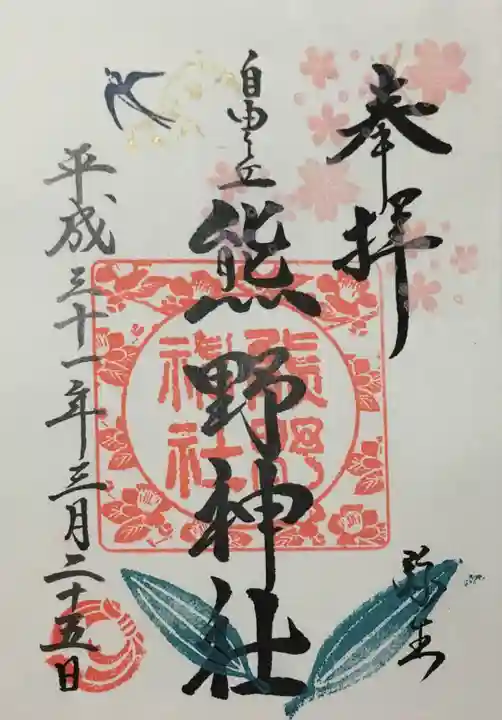 奉拝
弥生
自由ヶ丘
熊野神社
熊野
神社
平成三十一年三月二十五日